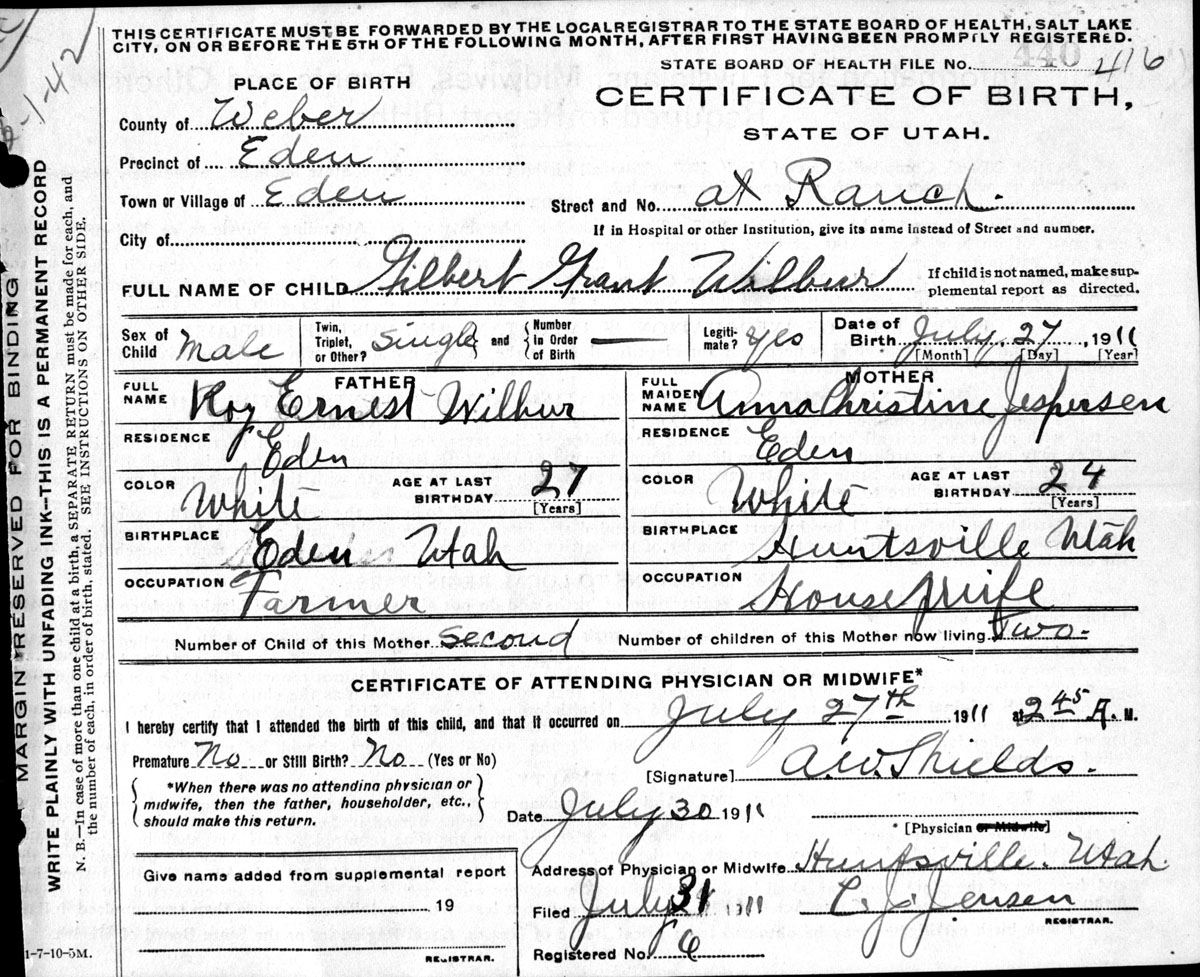 THIS CERTIFICATE MUST BE FORWARDED BY THE LOCAL REGISTRAR TO THE STATE BOARD OF HEALTH, SALT LAKE
CITY, ON OR BEFORE THE 5TH OF THE FOLLOWING MONTH, AFTER FIRST HAVING BEEN PROMPTLY REGISTERED.
440
STATE BOARD OF HEALTH FILE No. 416
PLACE OF BIRTH
CERTIFICATE OF BIRTH,
STATE OF UTAH.
County of Weber
Precinct of Eden
Town or Village of Eden
Street and No. at Ranch.
City of
If in Hospital or other Institution, give its name instead of Street and number.
FULL NAME OF CHILD Gilbert Grant Wilbur
If child is not named, make sup-
plemental report as directed.
Sex of Child Male
Twin, Triplet, or Other? Single and { Number in Order of Birth —
Legiti-mate? Yes
Date of Birth July 27, 1911
[Month] [Day] [Year]
FATHER
FULL NAME Roy Ernest Wilbur
RESIDENCE Eden
COLOR White AGE AT LAST BIRTHDAY 27 [Years]
BIRTHPLACE Eden Utah
OCCUPATION Farmer
MOTHER
FULL MAIDEN NAME Anna Christine Jespersen
RESIDENCE Eden
COLOR White AGE AT LAST BIRTHDAY 24 [Years]
BIRTHPLACE Huntsville Utah
OCCUPATION Housewife
Number of Child of this Mother Second Number of children of this Mother now living Two.
CERTIFICATE OF ATTENDING PHYSICIAN OR MIDWIFE*
I hereby certify that I attended the birth of this child, and that it occurred on July 27th 1911 at 2 45 A. M.
Premature No or Still Birth? No (Yes or No)
[Signature] A.W. Shields.
{ *When there was no attending physician or
midwife, then the father, householder, etc.,
should make this return. }
Date July 30 1911
* [Physician or Midwife]
Address of Physician or Midwife Huntsville. Utah.
Give name added from supplemental report
19
REGISTRAR.
Filed July 31 1911 C. J. Jensen
REGISTRAR.
Registered No. 6
1-7-10-5M.
MARGIN RESERVED FOR BINDING
WRITE PLAINLY WITH UNFADING INK—THIS IS A PERMANENT RECORD
N. B.—In case of more than one child at a birth, a SEPARATE RETURN must be made for each, and
the number of each, in order of birth, stated. SEE INSTRUCTIONS ON OTHER SIDE.